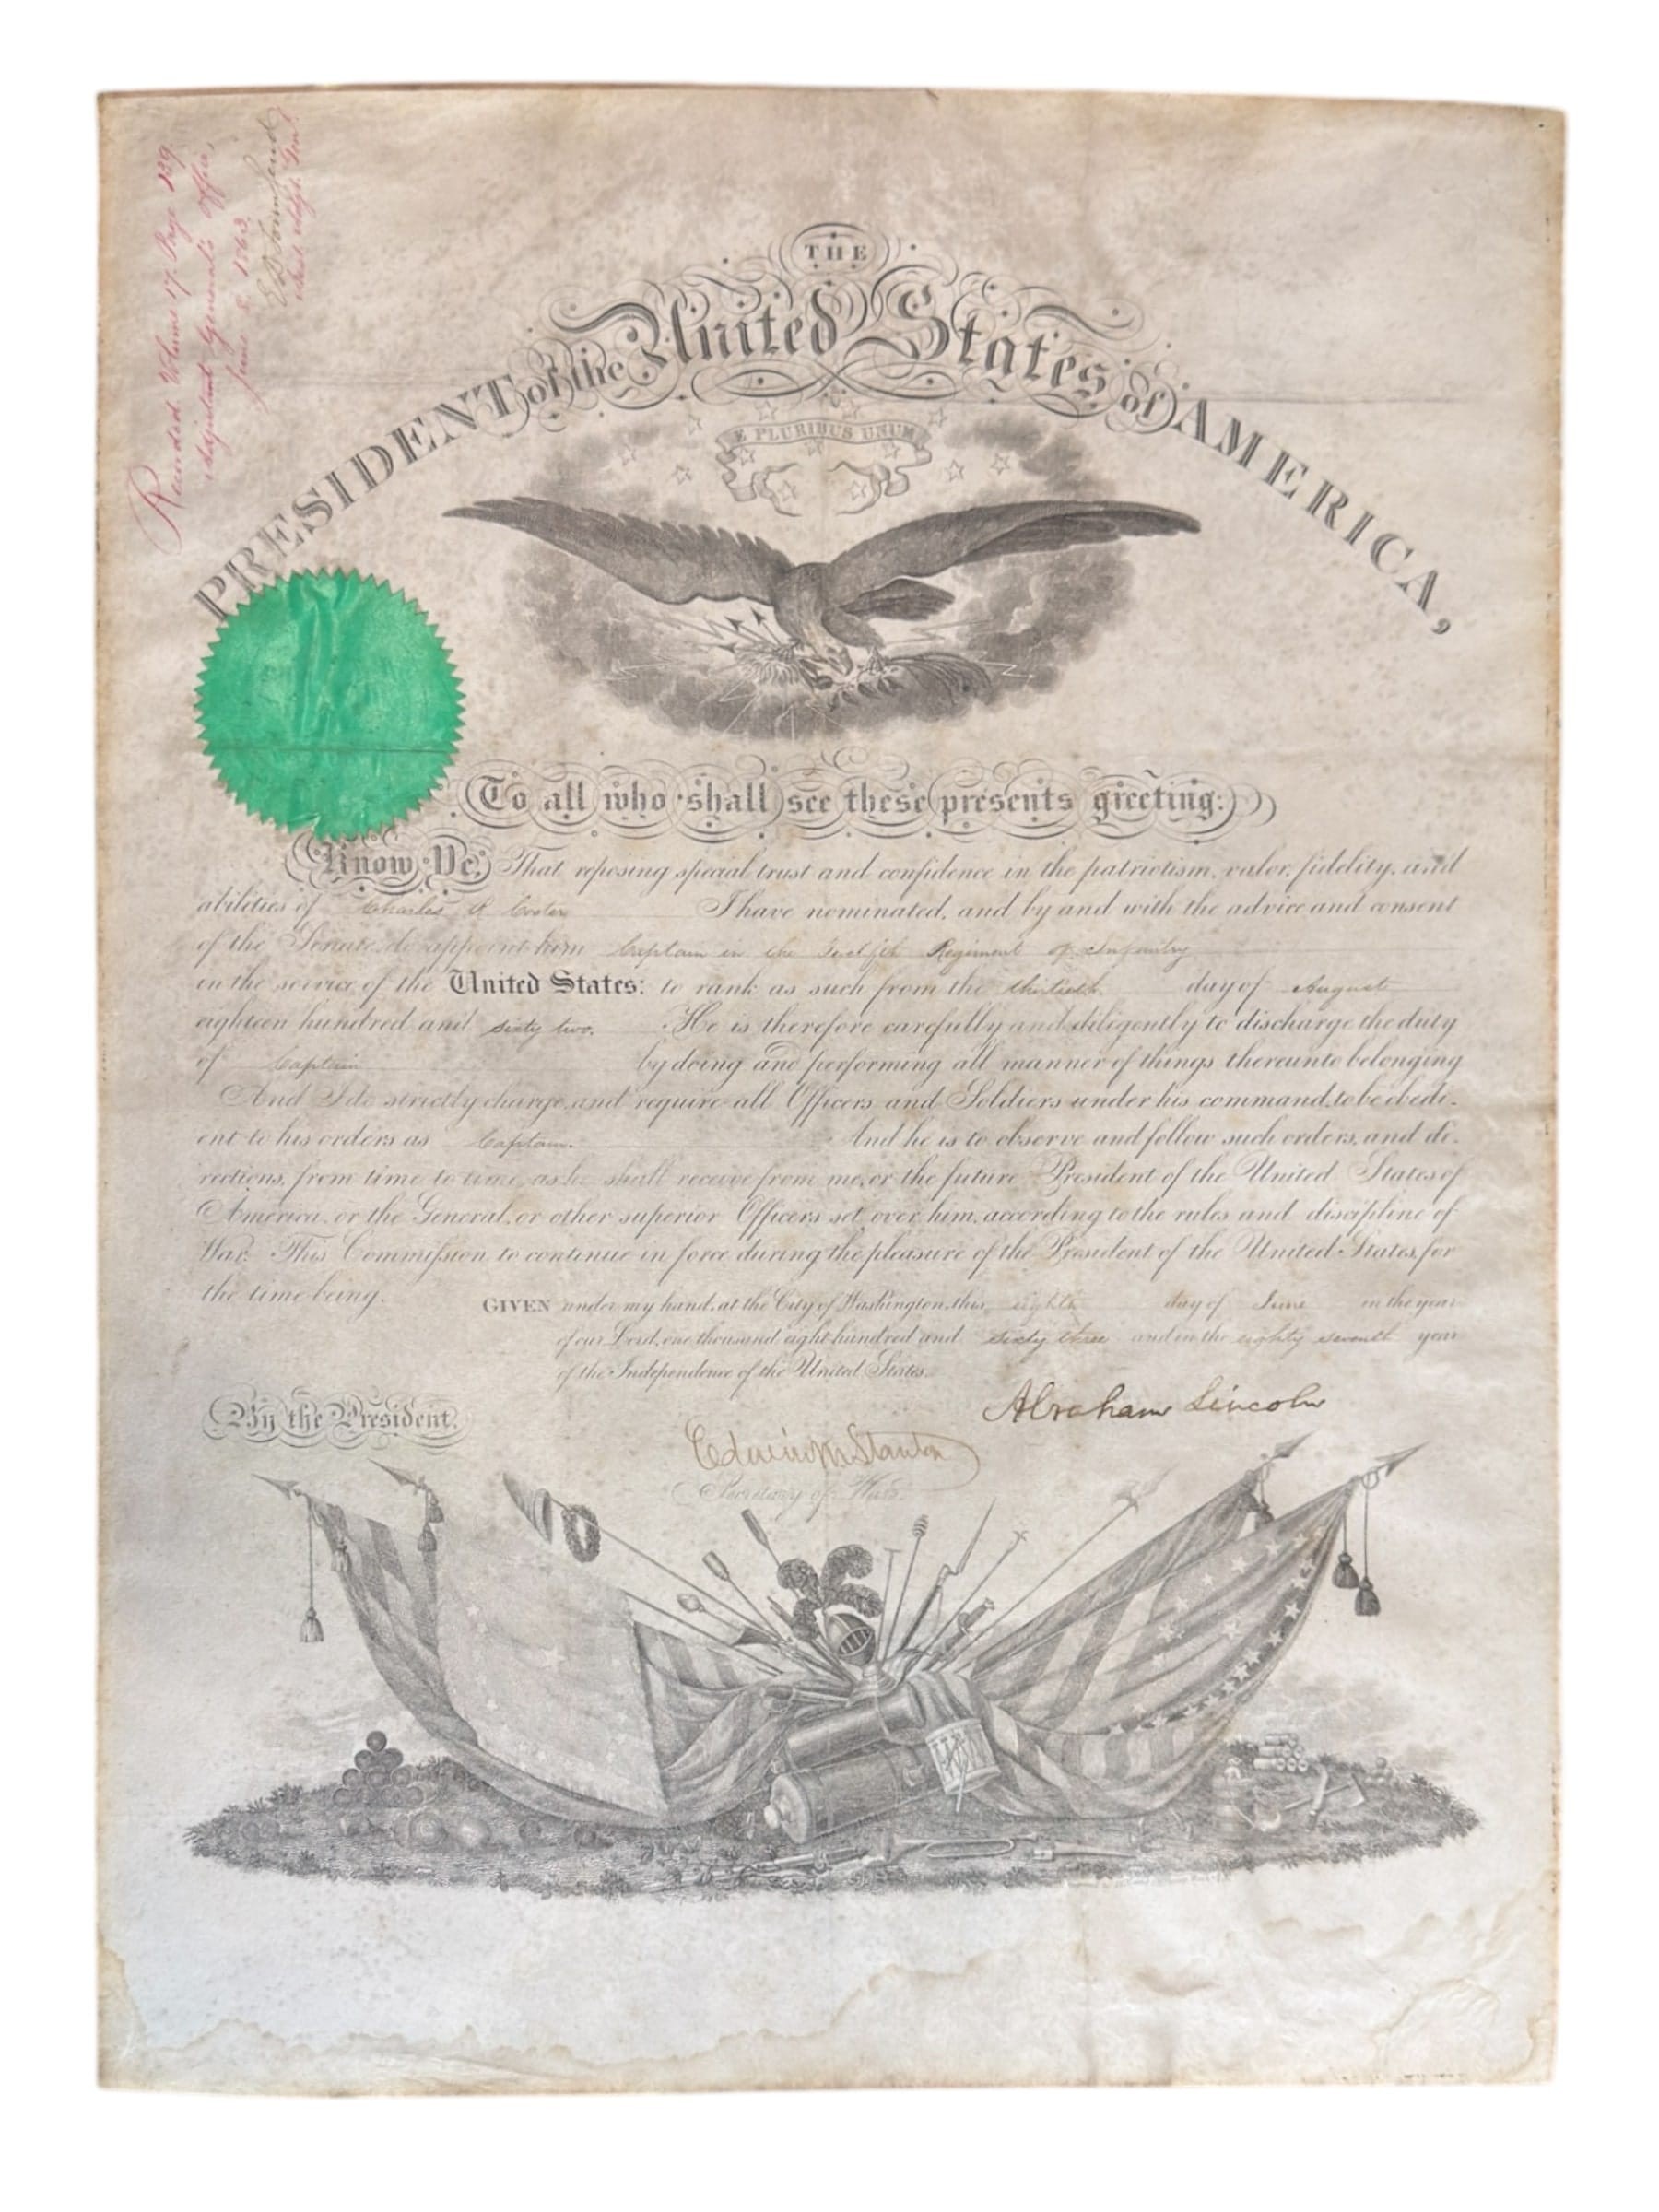 Recorded Volume 17. Page 139
Adjutant General's Office,
June 8. 1863.
E D Townsend
Asst. Adjt. Genl.
THE
PRESIDENT of the United States of AMERICA,
E PLURIBUS UNUM
To all who shall see these presents greeting:
Know Ye, That reposing special trust and confidence in the patriotism, valor, fidelity, and
abilities of Charles R Coster I have nominated, and by and with the advice and consent
of the Senate, do appoint him Captain in the Twelfth Regiment of Infantry
in the service of the United States: to rank as such from the thirtieth day of August
eighteen hundred and sixty two. He is therefore carefully and diligently to discharge the duty
of Captain by doing and performing all manner of things thereunto belonging
And I do strictly charge, and require all Officers and Soldiers under his command, to be obedi-
ent to his orders as Captain. And he is to observe and follow such orders, and di-
rections, from time to time, as he shall receive from me, or the future President of the United States of
America, or the General, or other superior Officers set over him, according to the rules and discipline of
War. This Commission to continue in force during the pleasure of the President of the United States, for
the time being.
GIVEN under my hand, at the City of Washington, this eighth day of June in the year
of our Lord, one thousand eight hundred and sixty three and in the eighty seventh year
of the Independence of the United States.
Abraham Lincoln
By the President.
Edwin M Stanton
Secretary of War.